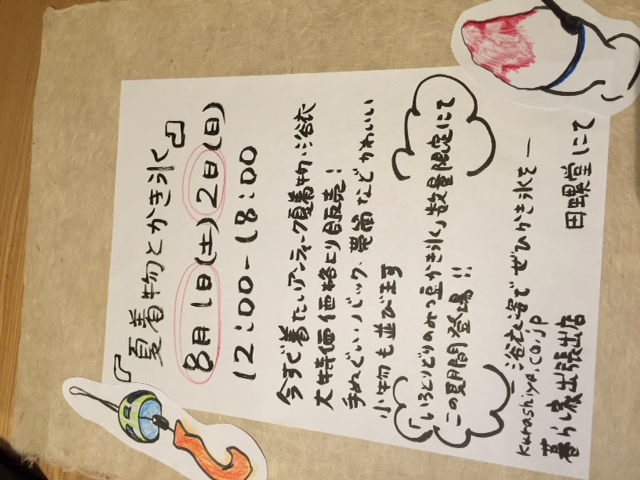 『夏着物とかき氷』
8月1日(土)2日(日)
12:00-18:00
今すぐ着たいアンティーク夏着物・浴衣
大特価価格より販売!
手ぬぐい・バック、帯留などかわいい
小物も並びます
「いろとりどりのみつ豆かき氷」数量限定にて
この期間登場!!
―浴衣姿でぜひかき氷を―
kurashiya.co.jp 田螺堂にて
暮らし家出張出店